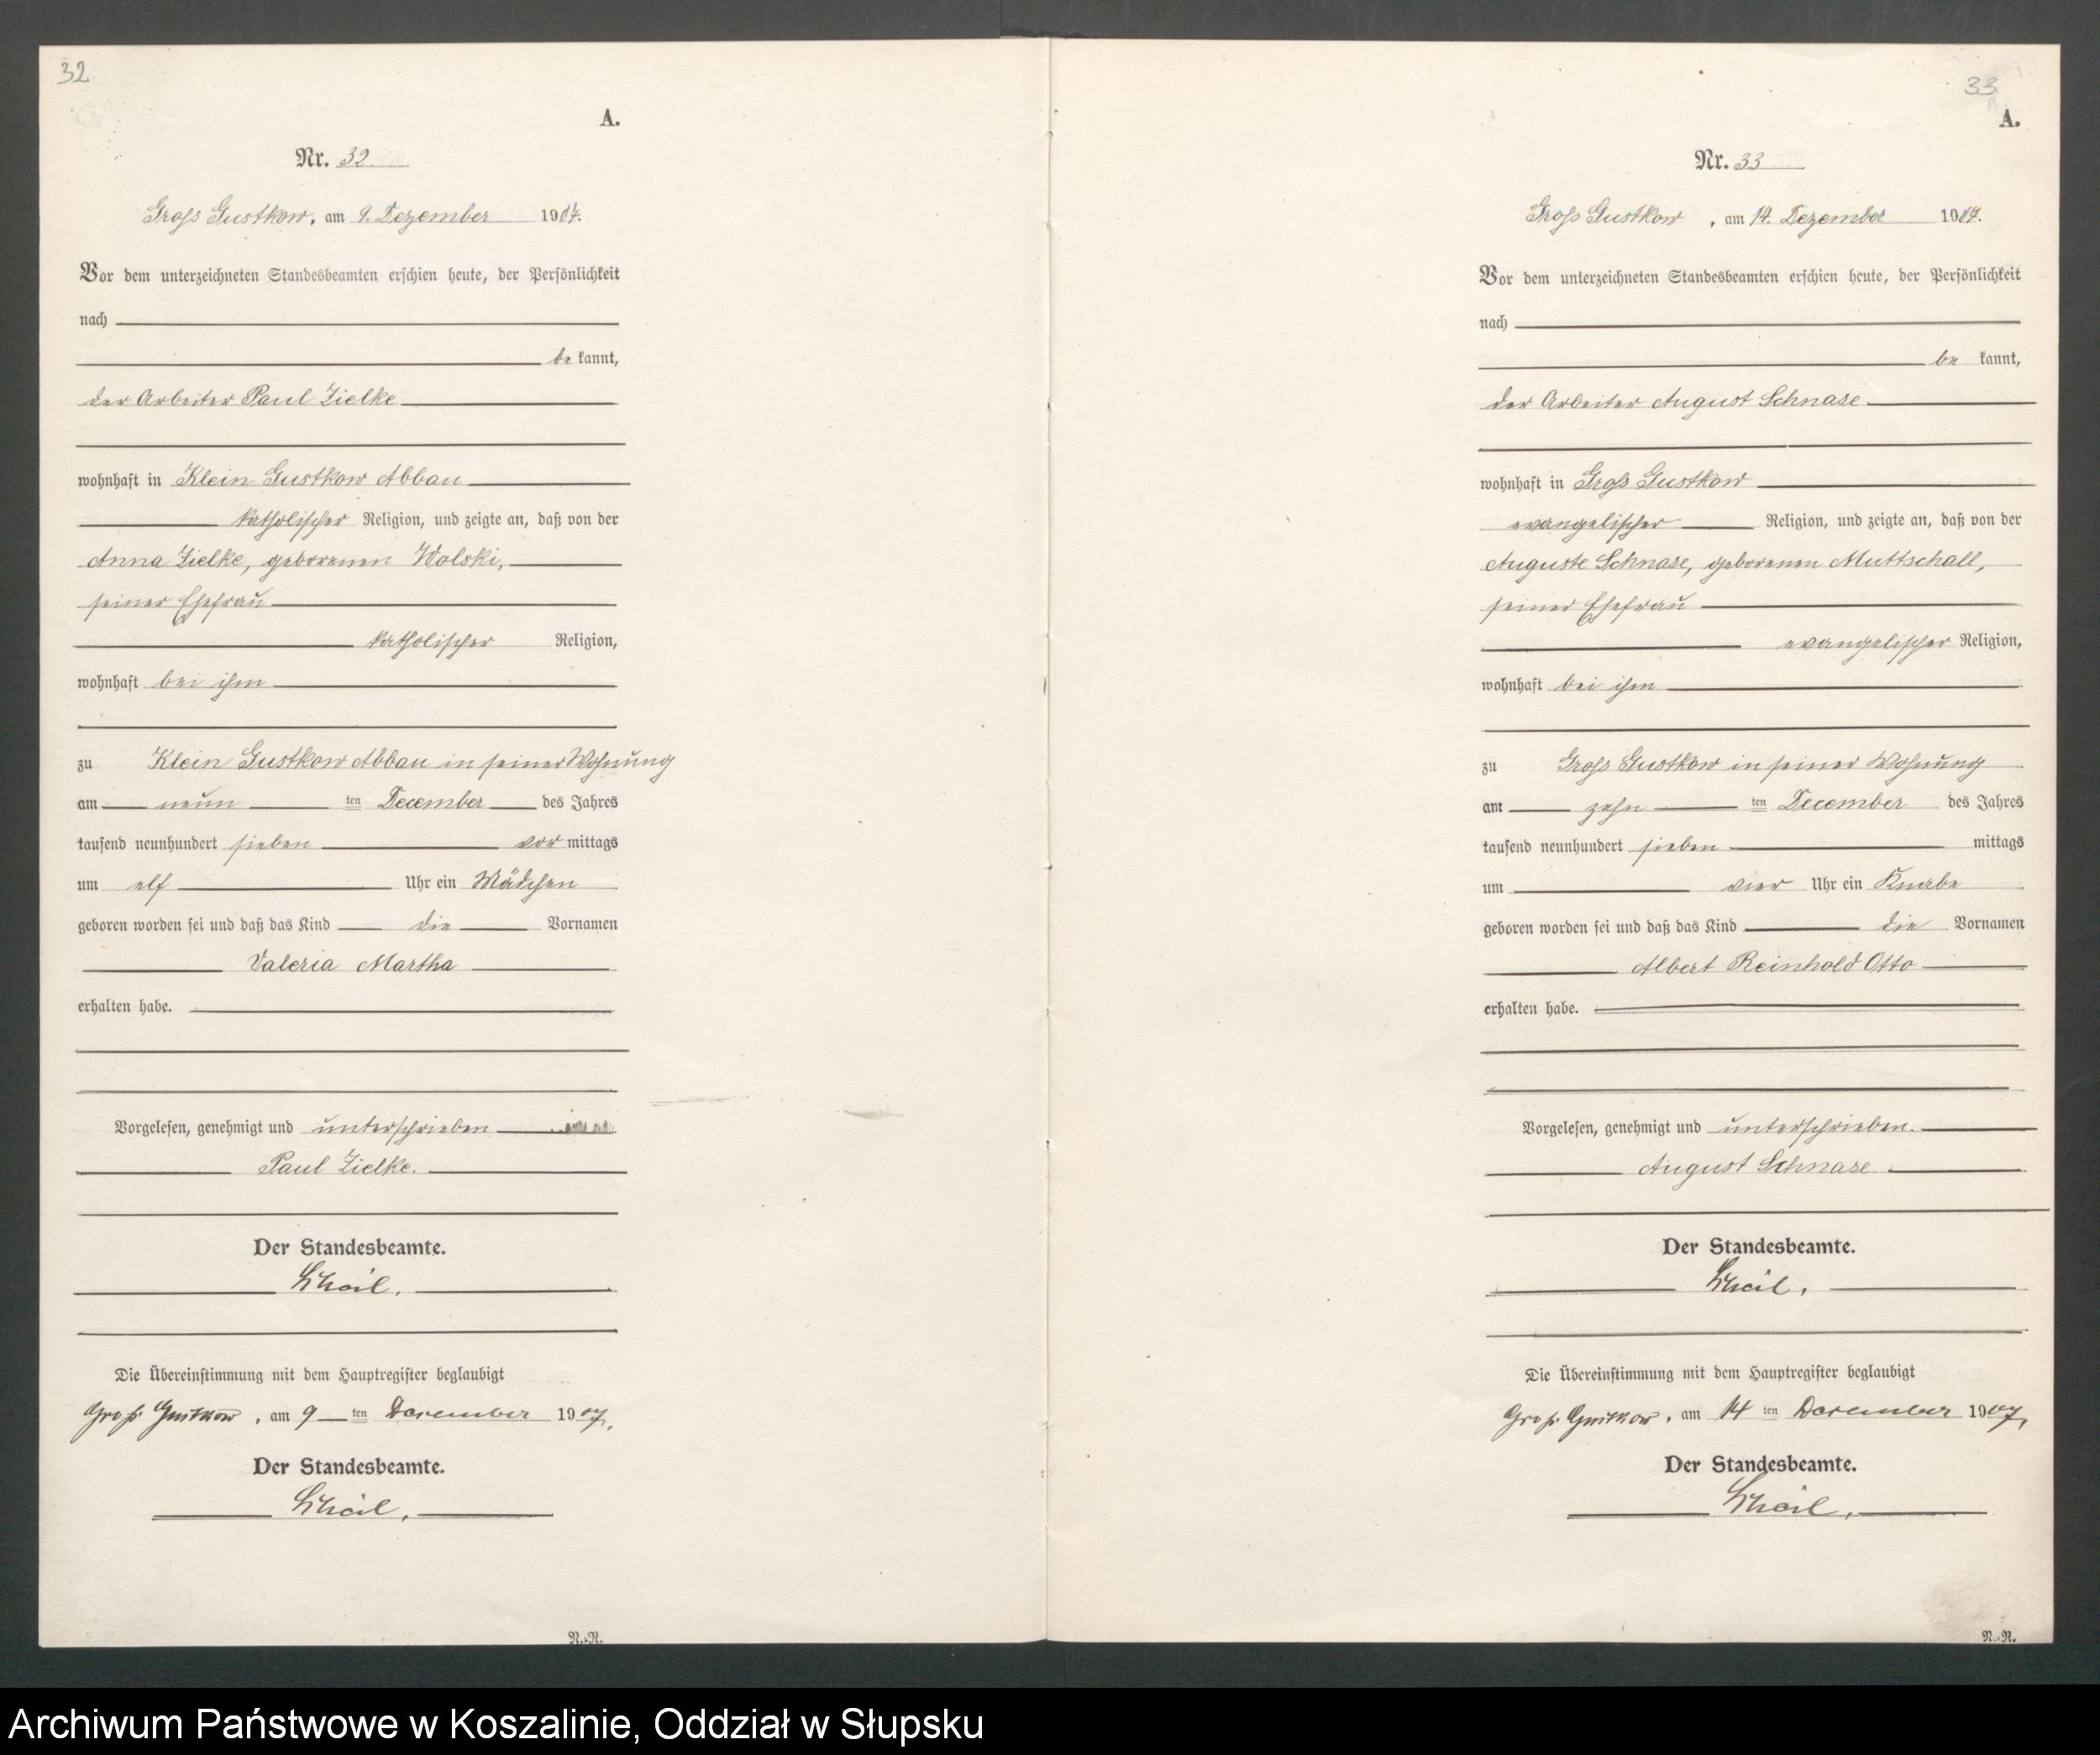 32
A.
Nr. 32.
Gross Gustkow, am 9. Dezember 1907.
Vor dem unterzeichneten Standesbeamten erschien heute, der Persönlichkeit
nach
be kannt,
der Arbeiter Paul Zielke
wohnhaft in Klein Gustkow Abbau
katholischer Religion, und zeigte an, daß von der
Anna Zielke, geborenen Wolski,
seiner Ehefrau
katholischer Religion,
wohnhaft bei ihm
zu Klein Gustkow Abbau in seiner Wohnung
am neun ten December des Jahres
tausend neunhundert sieben vor mittags
um elf Uhr ein Mädchen
geboren worden sei und daß das Kind die Vornamen
Valeria Martha
erhalten habe.
Vorgelesen, genehmigt und unterschrieben
Paul Zielke.
Der Standesbeamte.
Die Übereinstimmung mit dem Hauptregister beglaubigt
Groß Gustkow, am 9 ten December 1907.
Der Standesbeamte.
N.-R.
33
A.
Nr. 33
Gross Gustkow, am 14. Dezember 1907.
Vor dem unterzeichneten Standesbeamten erschien heute, der Persönlichkeit
nach
be kannt,
der Arbeiter August Schnase
wohnhaft in Gross Gustkow
evangelischer Religion, und zeigte an, daß von der
Auguste Schnase, geborenen Muttschall,
seiner Ehefrau
evangelischer Religion,
wohnhaft bei ihm
zu Gross Gustkow in seiner Wohnung
am zehn ten December des Jahres
tausend neunhundert sieben mittags
um vier Uhr ein Knabe
geboren worden sei und daß das Kind die Vornamen
Albert Reinhold Otto
erhalten habe.
Vorgelesen, genehmigt und unterschrieben.
August Schnase
Der Standesbeamte.
Die Übereinstimmung mit dem Hauptregister beglaubigt
Groß Gustkow, am 14 ten December 1907,
Der Standesbeamte.
N.-R.
Archiwum Państwowe w Koszalinie, Oddział w Słupsku